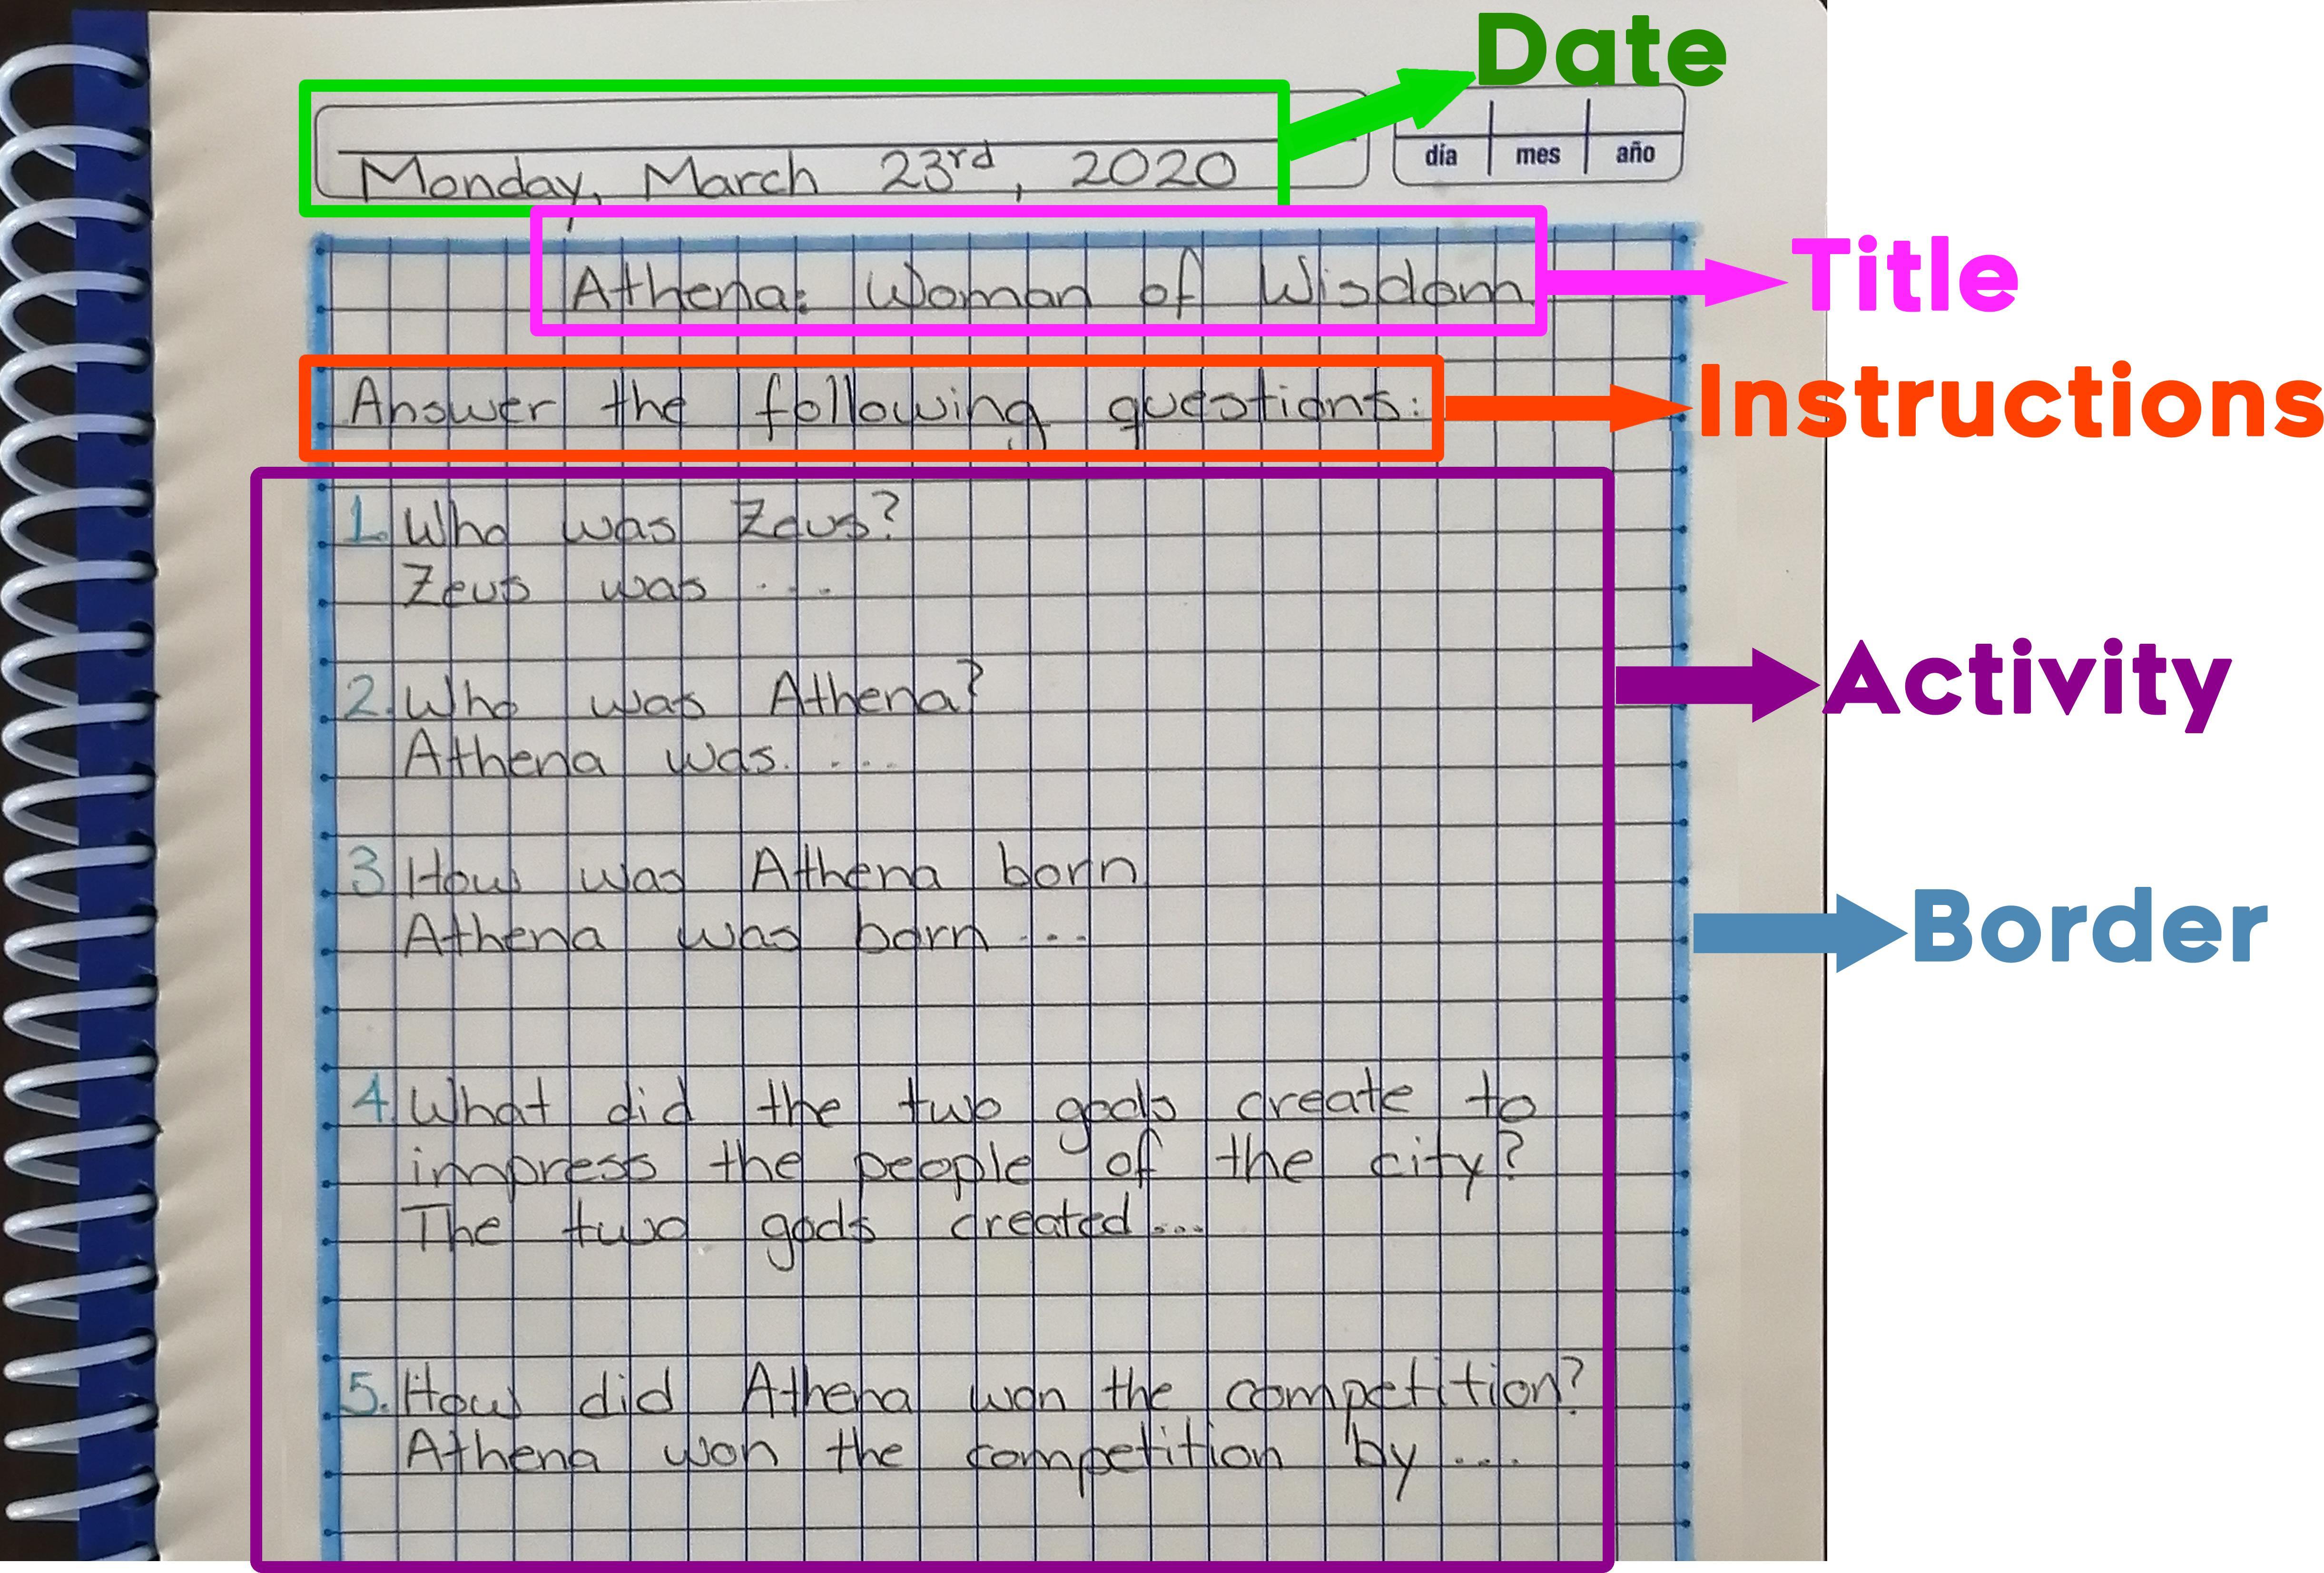 Date
Monday, March 23rd, 2020
día mes año
Athena: Woman of Wisdom
Title
Answer the following questions:
Instructions
1. Who was Zeus?
Zeus was ...
2. Who was Athena?
Athena was. ...
Activity
3 How was Athena born
Athena was born ...
Border
4. What did the two gods create to
impress the people of the city?
The two gods created...
5. How did Athena won the competition?
Athena won the competition by ...